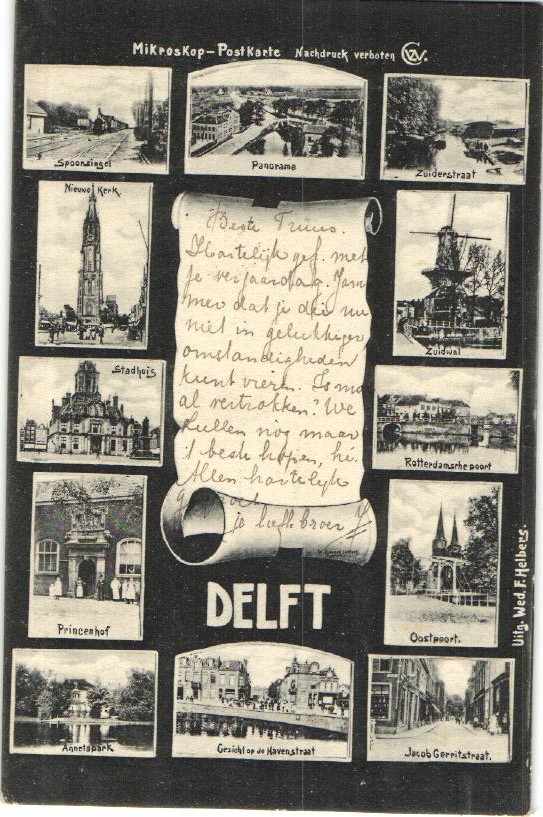 Mikroskop–Postkarte Nachdruck verboten
Spoorsingel
Panorama
Zuiderstraat
Nieuwe Kerk
Zuidwal
Stadhuis
Rotterdamsche poort
Princenhof
Oostpoort.
Beste Truus.
Hartelijk gef. met
je verjaardag. Jam
mer dat je die nu
niet in gelukkiger
omstandigheden
kunt vieren. Is
al vertrokken? We
zullen nog maar
't beste hopen, hè.
Allen hartelijk
je liefh. broer
DELFT
Uitg. Wed. F. Helbers.
Annetapark
Gezicht op de Havenstraat
Jacob Gerritstraat.